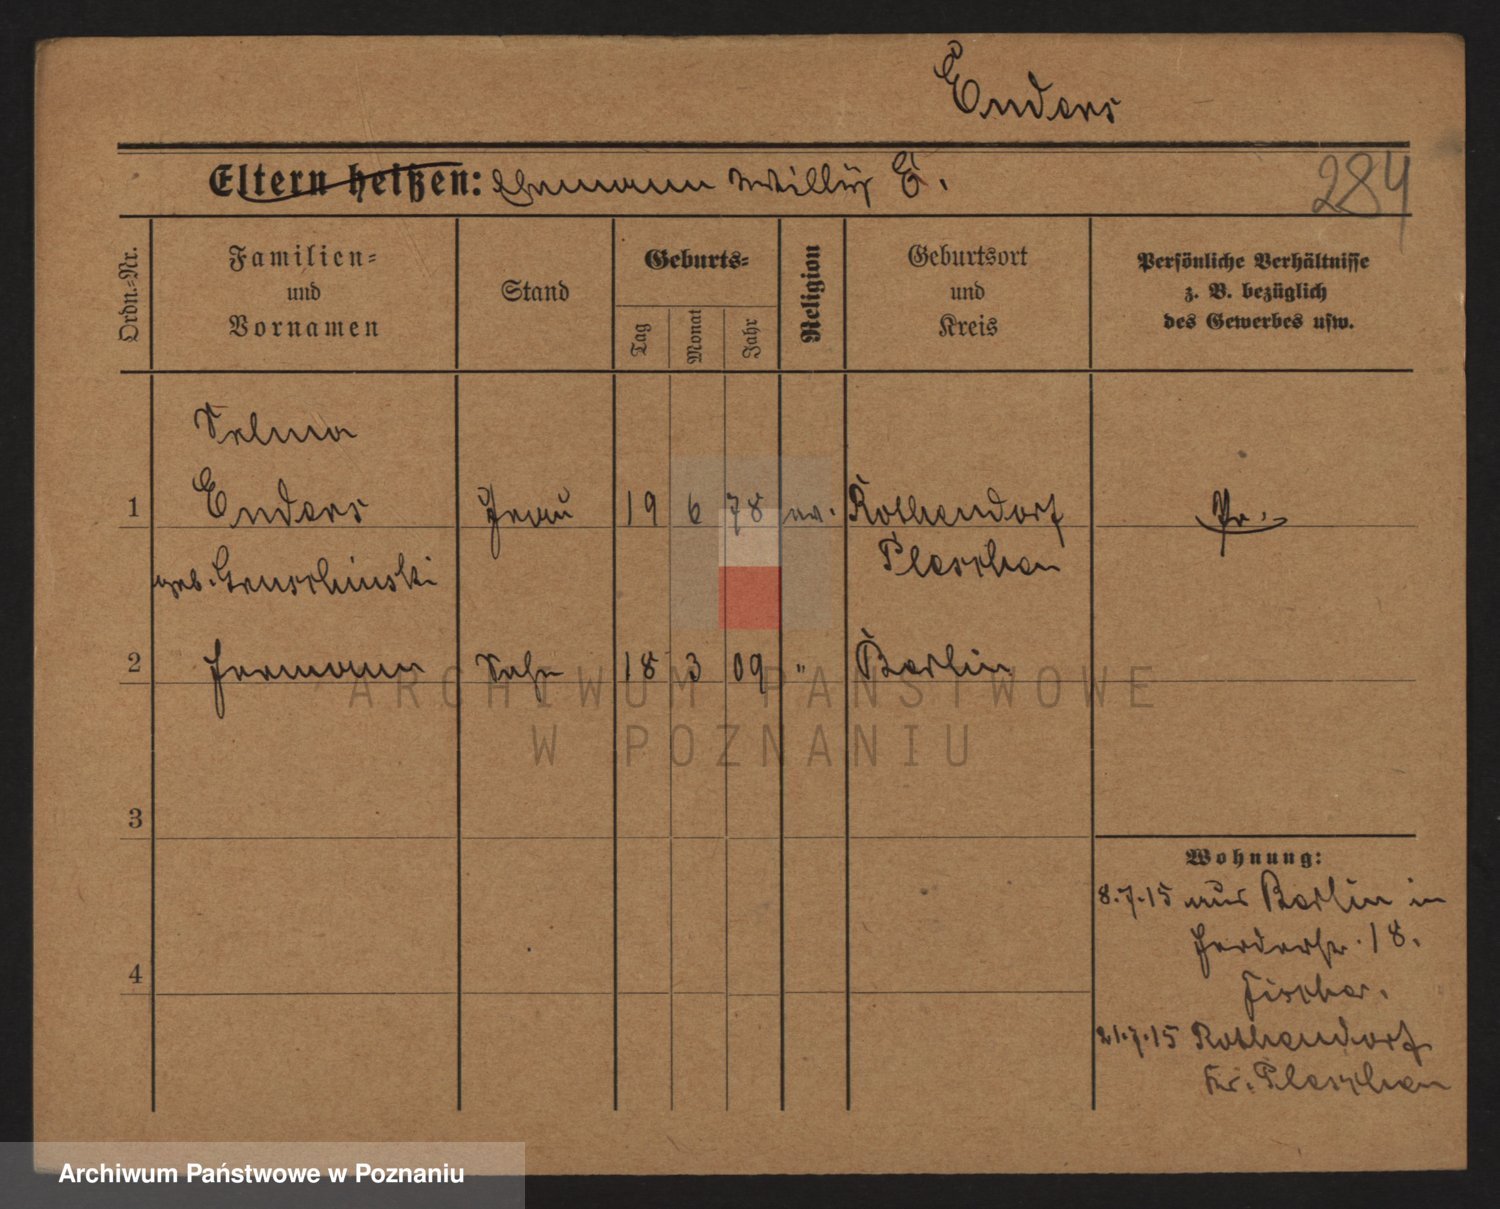 Enders
Eltern heißen: Ehemann Willy E.
284
Ordn.-Nr.
Familien-
und
Vornamen
Stand
Geburts-
Tag
Monat
Jahr
Religion
Geburtsort
und
Kreis
Persönliche Verhältnisse
z. B. bezüglich
des Gewerbes usw.
Selma
1 Enders Frau 19 6 78 ev. Rothendorf Pr.
geb. Pleschen
2 Hermann Sohn 18 3 09 " Berlin
3
4
Wohnung:
8.7.15 aus Berlin in
Herderstr. 18.
Fischer.
21.7.15 Rothendorf
Kr. Pleschen
ARCHIWUM PAŃSTWOWE
W POZNANIU
Archiwum Państwowe w Poznaniu